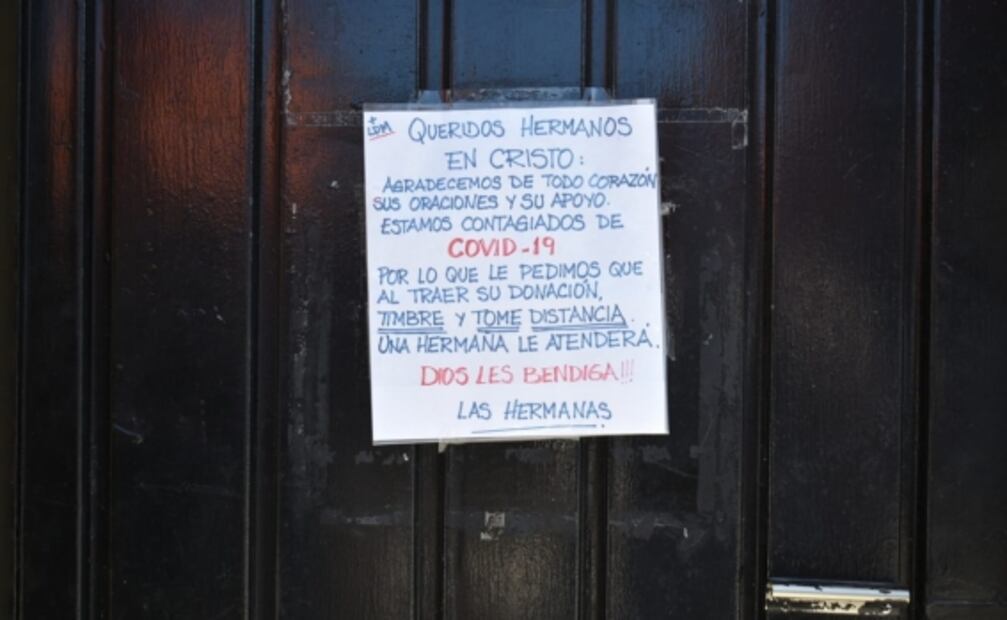 +
LDM
QUERIDOS HERMANOS
EN CRISTO:
AGRADECEMOS DE TODO CORAZÓN
SUS ORACIONES Y SU APOYO.
ESTAMOS CONTAGIADOS DE
COVID-19
POR LO QUE LE PEDIMOS QUE
AL TRAER SU DONACIÓN,
TIMBRE Y TOME DISTANCIA.
UNA HERMANA LE ATENDERÁ.
DIOS LES BENDIGA!!!
LAS HERMANAS.